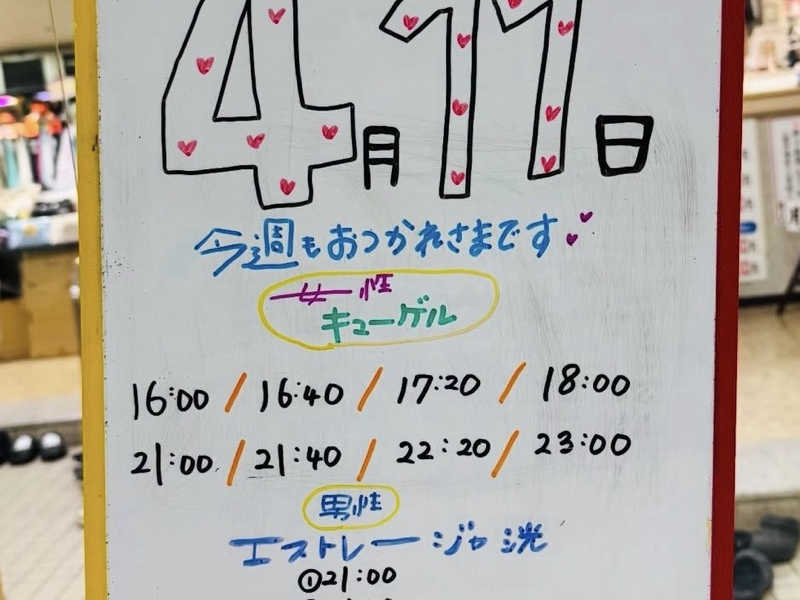 4月11日
今週もおつかれさまです
女性
キューゲル
16:00 / 16:40 / 17:20 / 18:00
21:00 / 21:40 / 22:20 / 23:00
男性
エストレージャ洸
①21:00